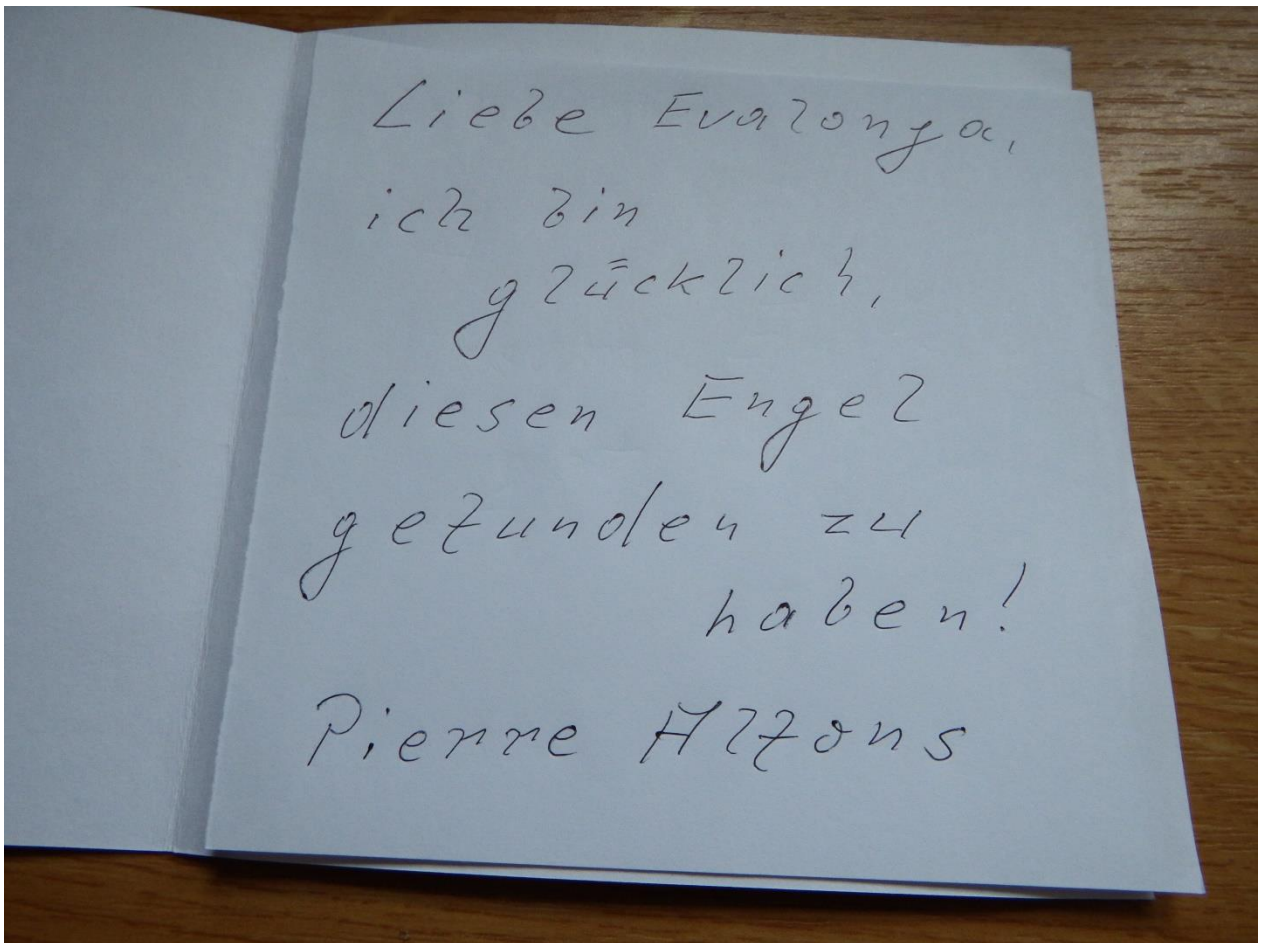 Liebe Evalonga,
ich bin
glücklich,
diesen Engel
gefunden zu
haben!
Pierre Alfons